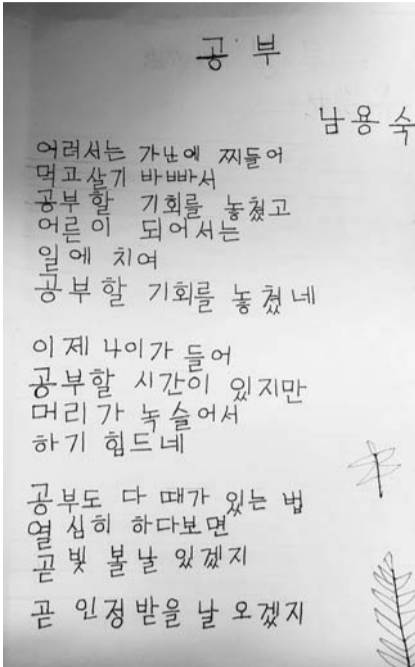 공부
남용숙
어려서는 가난에 찌들어
먹고살기 바빠서
공부할 기회를 놓쳤고
어른이 되어서는
일에 치여
공부할 기회를 놓쳤네
이제 나이가 들어
공부할 시간이 있지만
머리가 녹슬어서
하기 힘드네
공부도 다 때가 있는 법
열심히 하다보면
곧 빛 볼날 있겠지
곧 인정받을 날 오겠지